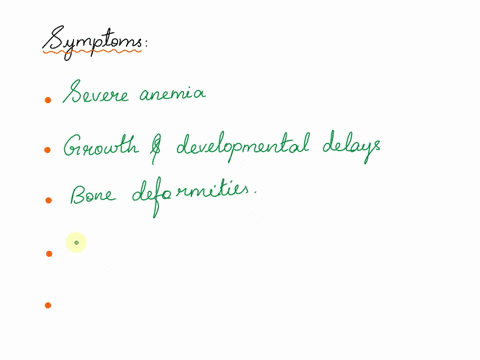 Symptoms:
Severe anemia
Growth & developmental delays
Bone deformities.